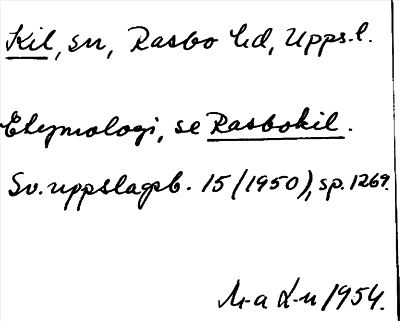 Kil, sn, Rasbo hd, Upps. l.
Etymologi, se Rasbokil.
Sv. uppslagsb. 15 (1950), sp. 1269.
M-a L-n 1954.